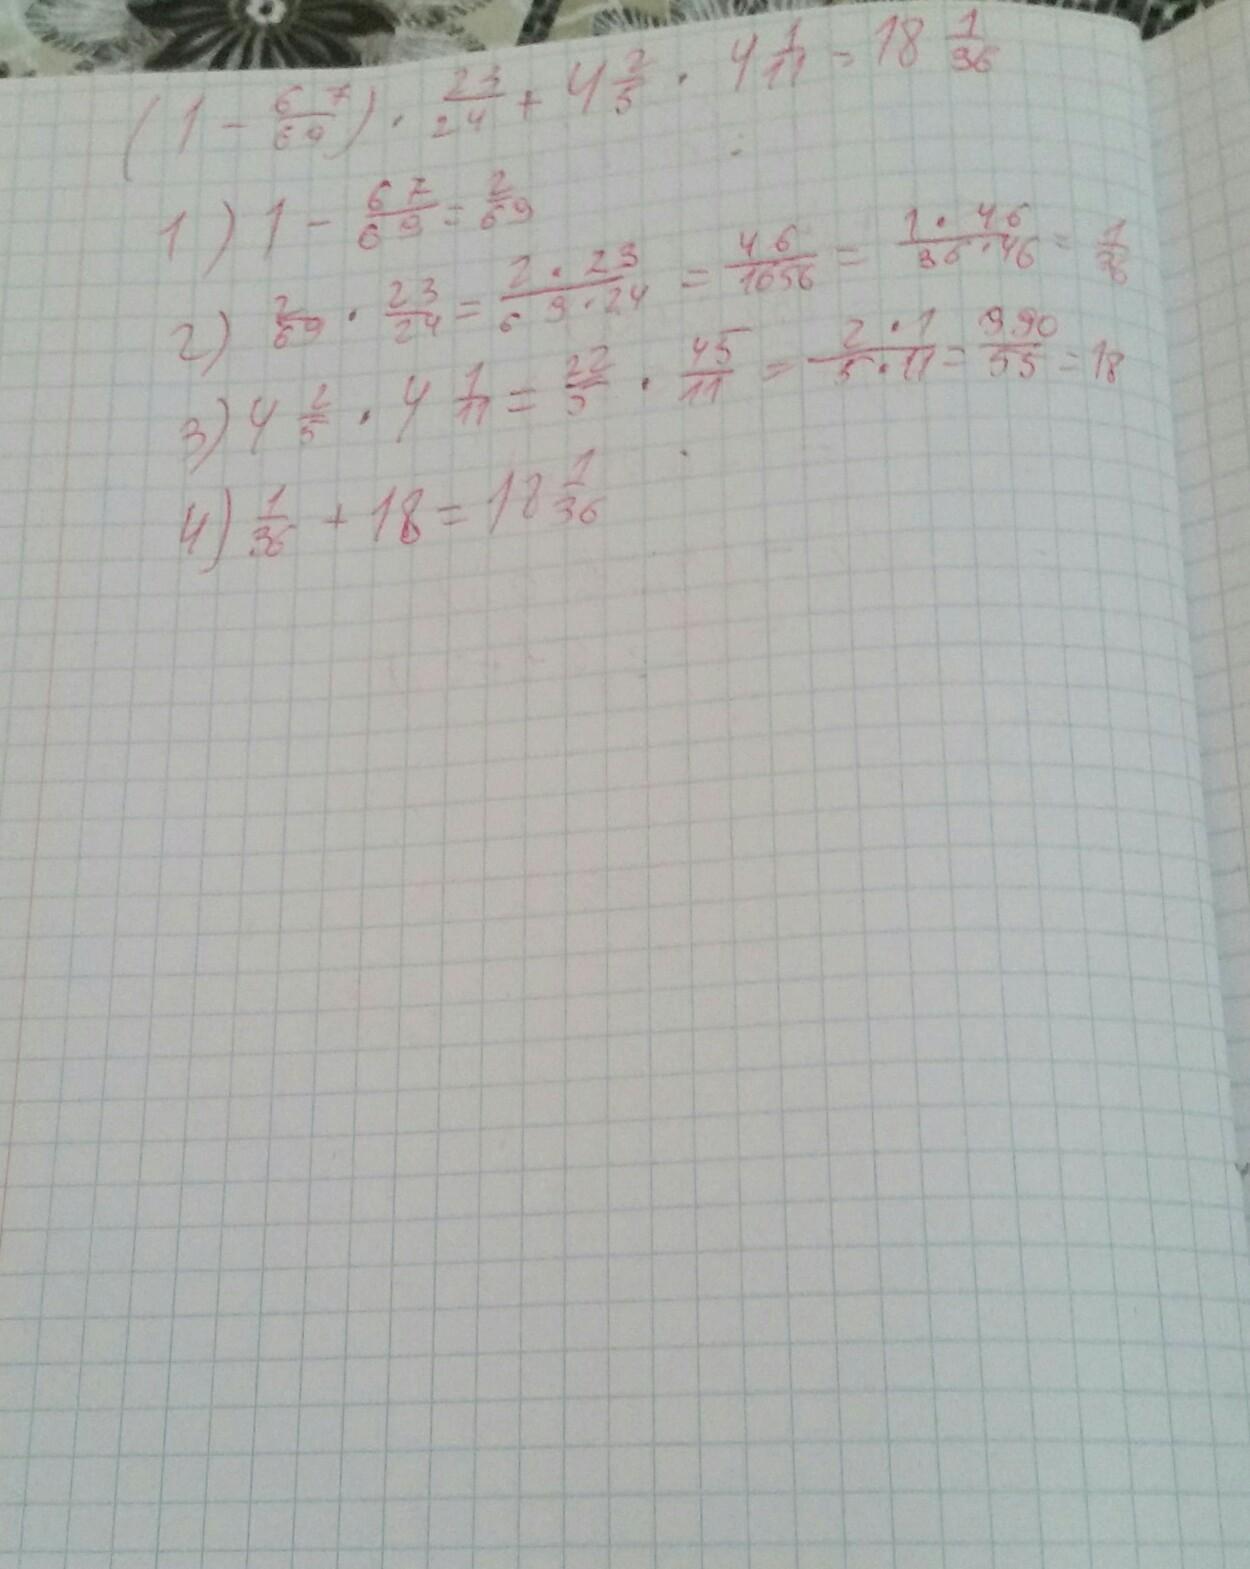 (1 - 67/69) · 23/24 + 4 2/5 · 4 1/11 = 18 1/36
1) 1 - 67/69 = 2/69
2) 2/69 · 23/24 = 2·23/69·24 = 46/1656 = 1·46/36·46 = 1/36
3) 4 2/5 · 4 1/11 = 22/5 · 45/11 = 2·1/5·11 = 990/55 = 18
4) 1/36 + 18 = 18 1/36